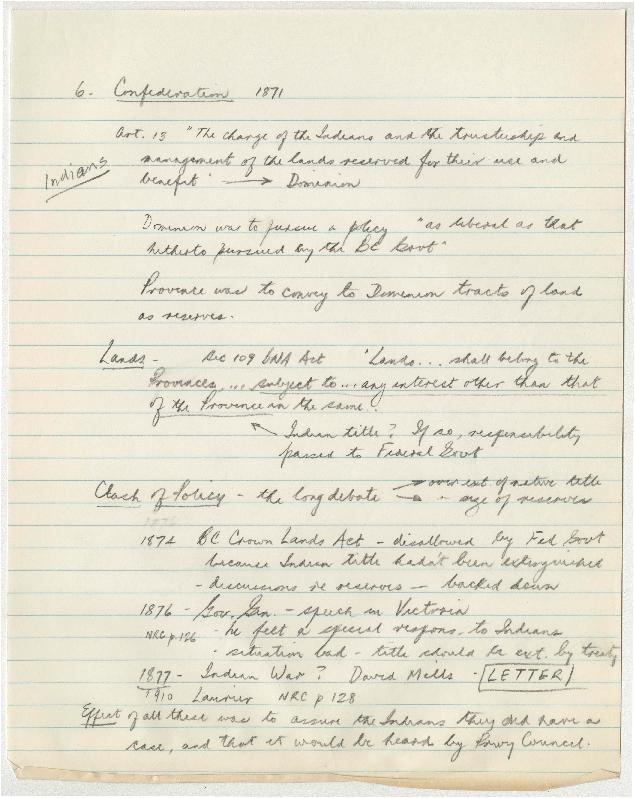 6. Confederation 1871
Art. 13 "The charge of the Indians and the trusteeship and
management of the lands reserved for their use and
Indians
benefit" → Dominion
Dominion was to pursue a policy "as liberal as that
hitherto pursued by the BC Govt"
Province was to convey to Dominion tracts of land
as reserves.
Lands - Sec 109 BNA Act "Lands... shall belong to the
Provinces, ... subject to... any interest other than that
of the Province in the same..
Indian title? If so, responsibility
passed to Federal Govt
Clash of Policy - the long debate → over ext. of native title
→ " size of reserves
1874 BC Crown Lands Act - disallowed by Fed Govt
because Indian title hadn't been extinguished
- discussions re reserves - backed down
1876 - Gov. Gen. - speech in Victoria
NRC p.126 - he felt a special respons. to Indians
- situation bad - title should be ext. by treaty
1877 - Indian War? David Mills - LETTER
1910 Laurier NRC p 128
Effect of all these was to assure the Indians they did have a
case, and that it would be heard by Privy Council.